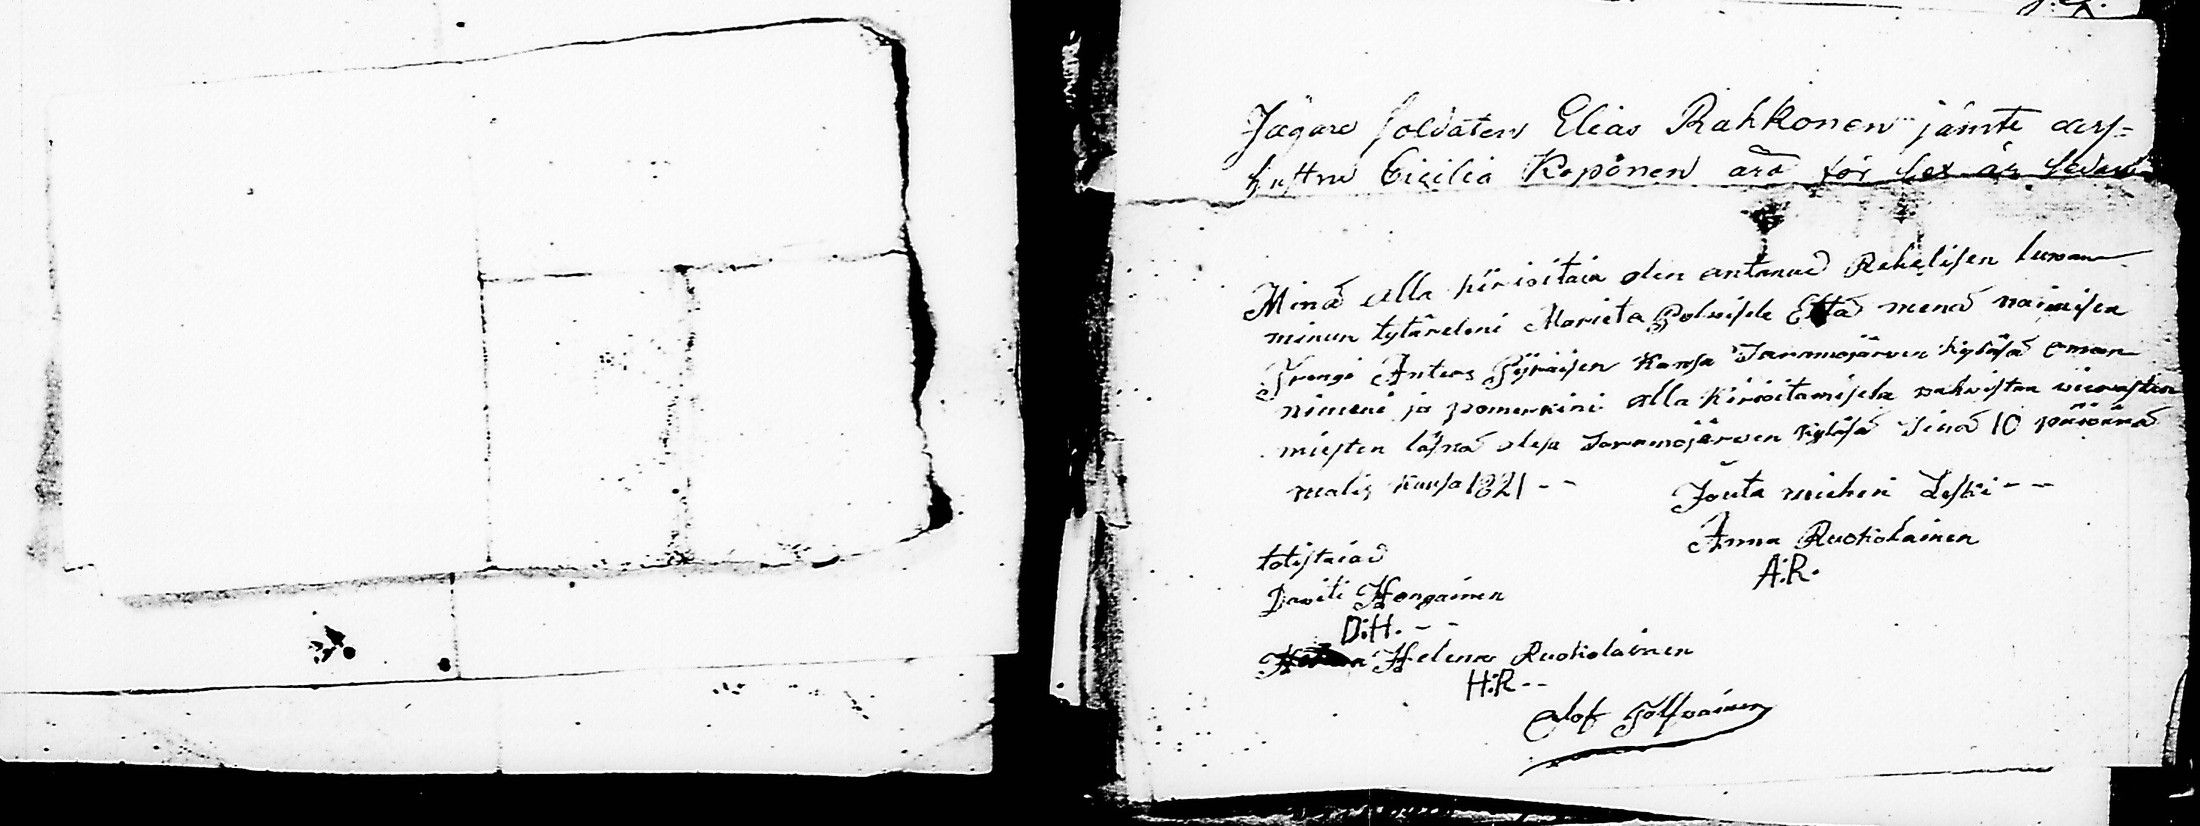 Jægare soldaten Elias Rahkonen jämte
hustru Cicilia Koponen ärä för sex år sedan
Minä alla kirioitain olen antanud Rehelisen luwan
minun tytäreleni Marieta Että menä naimisen
Trengi Anters Pÿräisen Kansa Jaramojärven kyläsä oman
nimeni ja pomerkini alla kirioitamisela wahvistan
miesten läsnä olesa Jaramojärven kyläsä Sinä 10 päiwänä
malis kuusa 1821 --
Jouta mieheni Leski --
Anna Ruokolainen
A:R.
totistaiad
Daviti Hongainen
D:H. --
Helena Ruokolainen
H:R --
Olof Tolfvainen